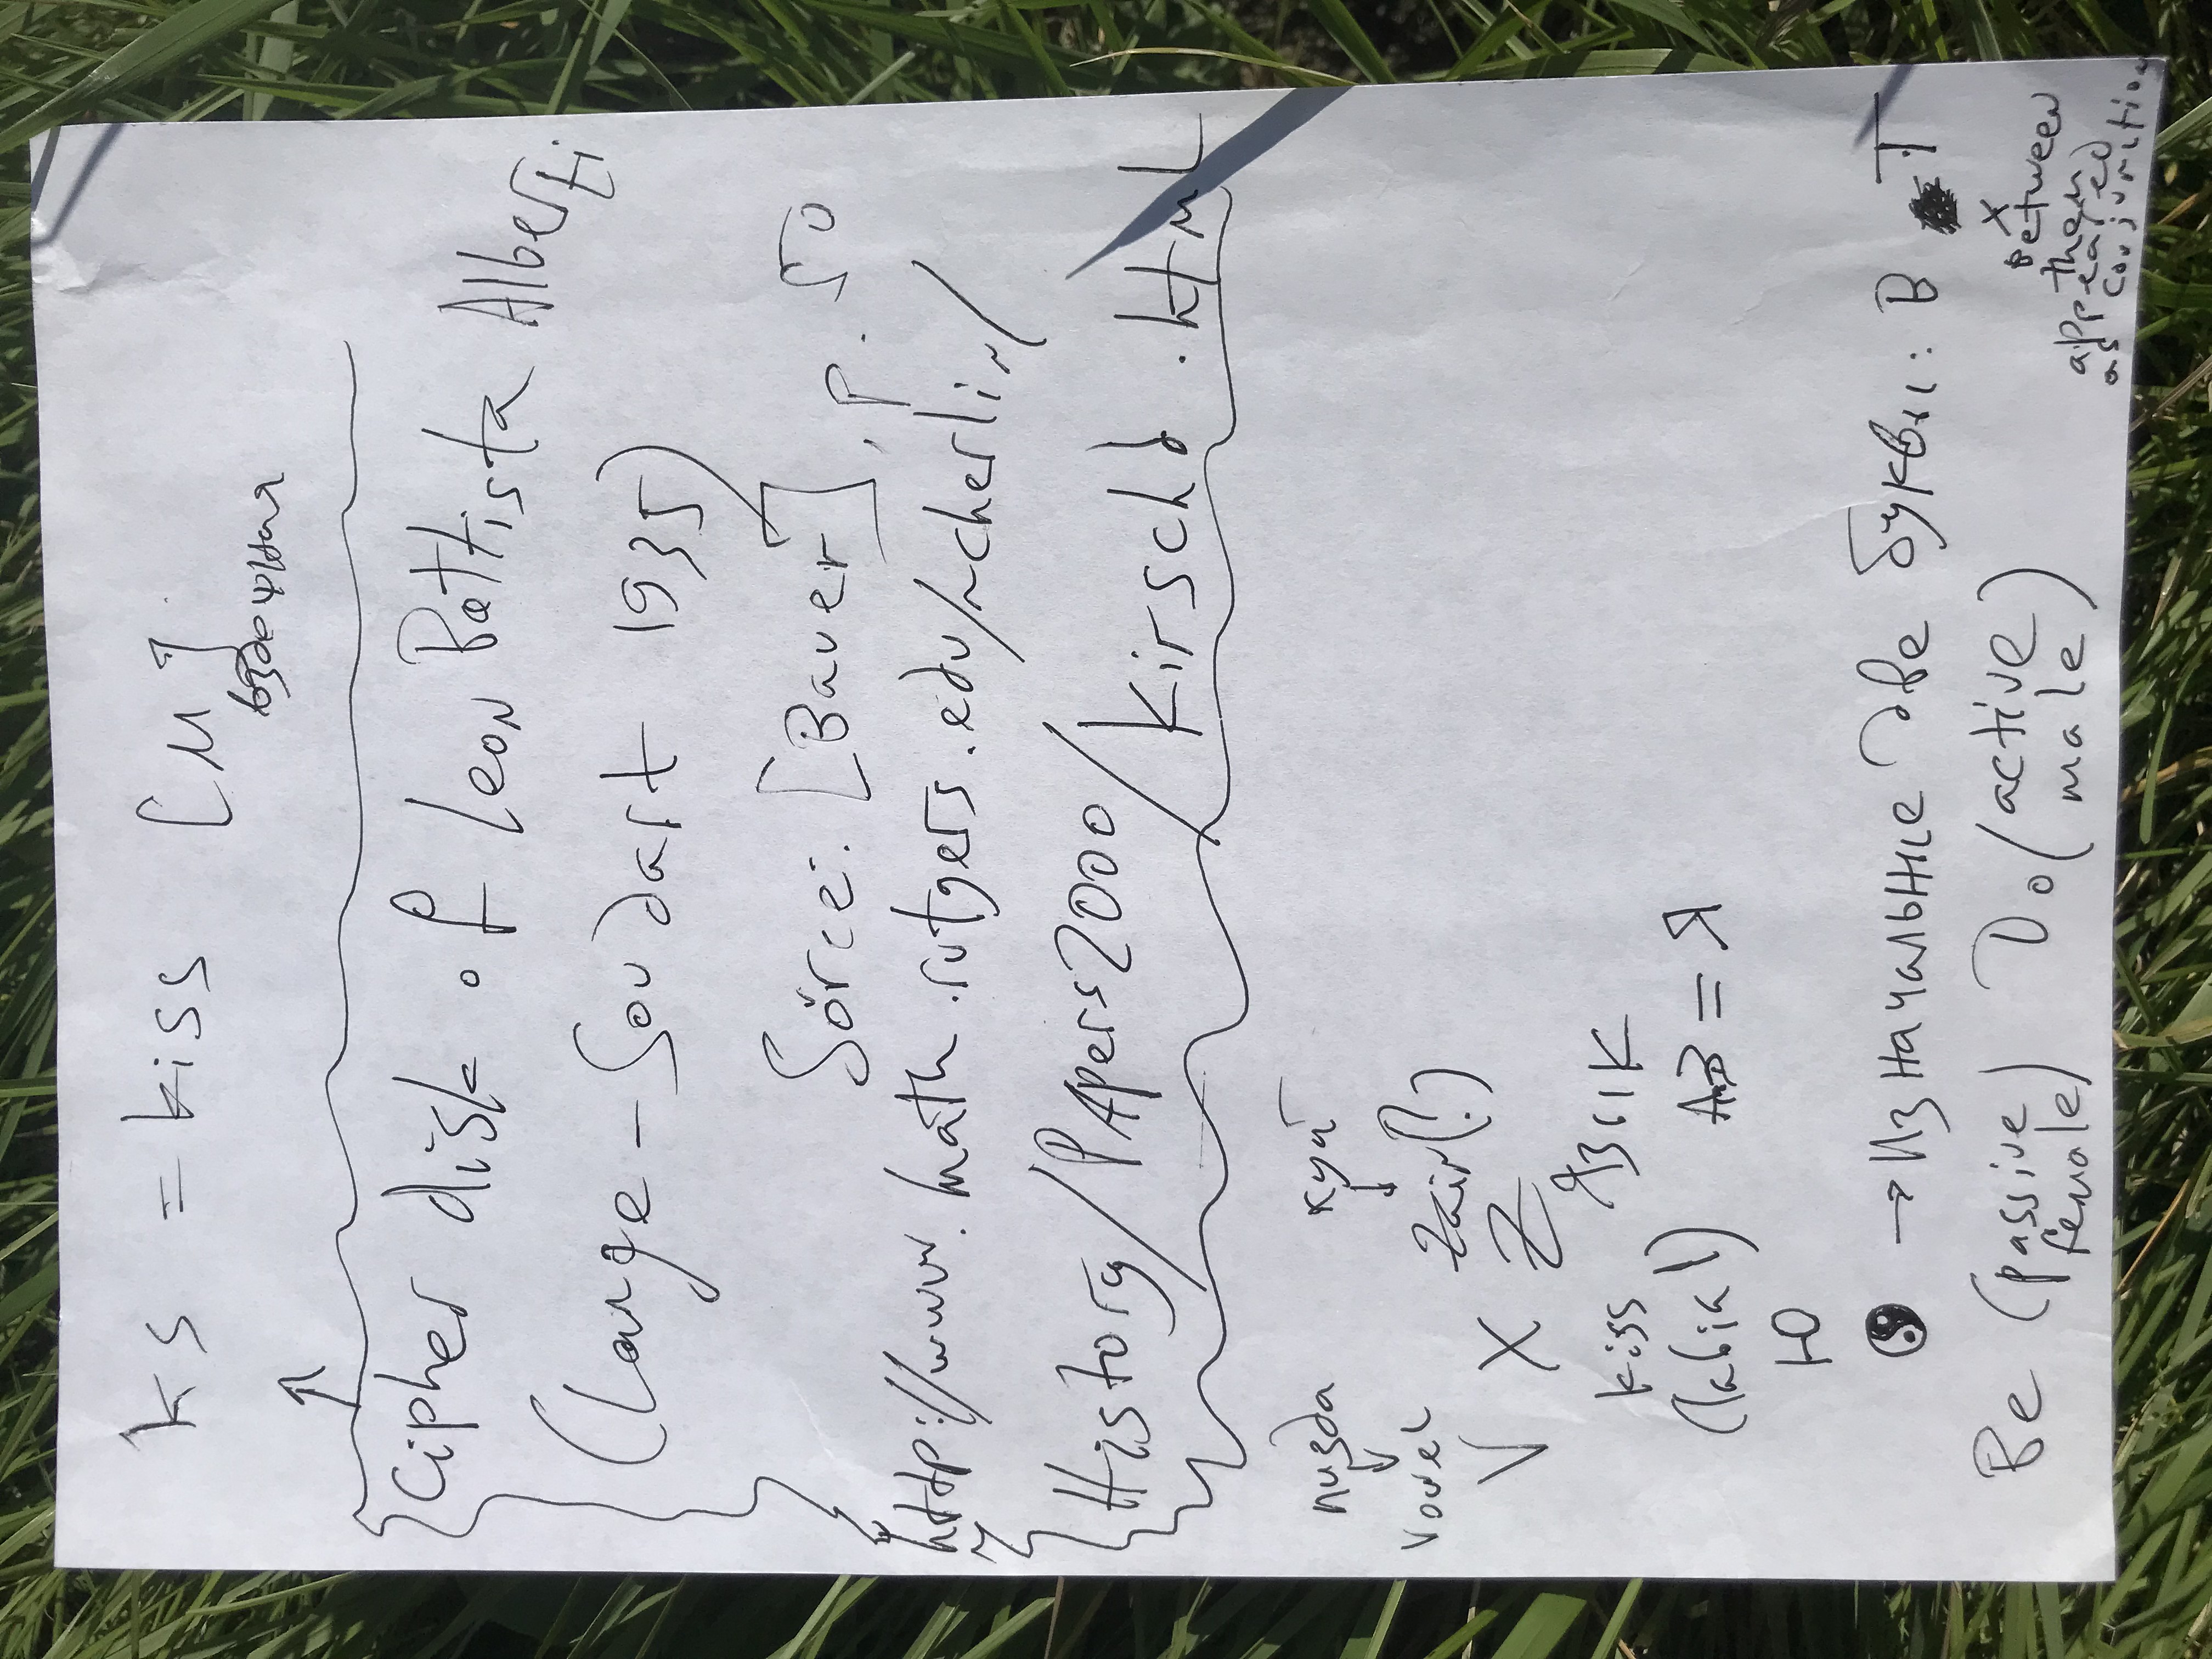 ks = kiss [M]
Cipher disk of Leon Battista Alberti
(Lange-Soudart 1935)
Sŏrce: [Bauer], p. 50
http://www.math.rutgers.edu/~cherlin/
History/PApers2000/kirschd.html
пизда хуй
vowel Zain(?)
V X Z
kiss язык
(labial) AB = Я
Ю
→ Изначальные две буквы: B T
Be (passive female) Do (active male)
X
Between
them
appeared
as conjunction